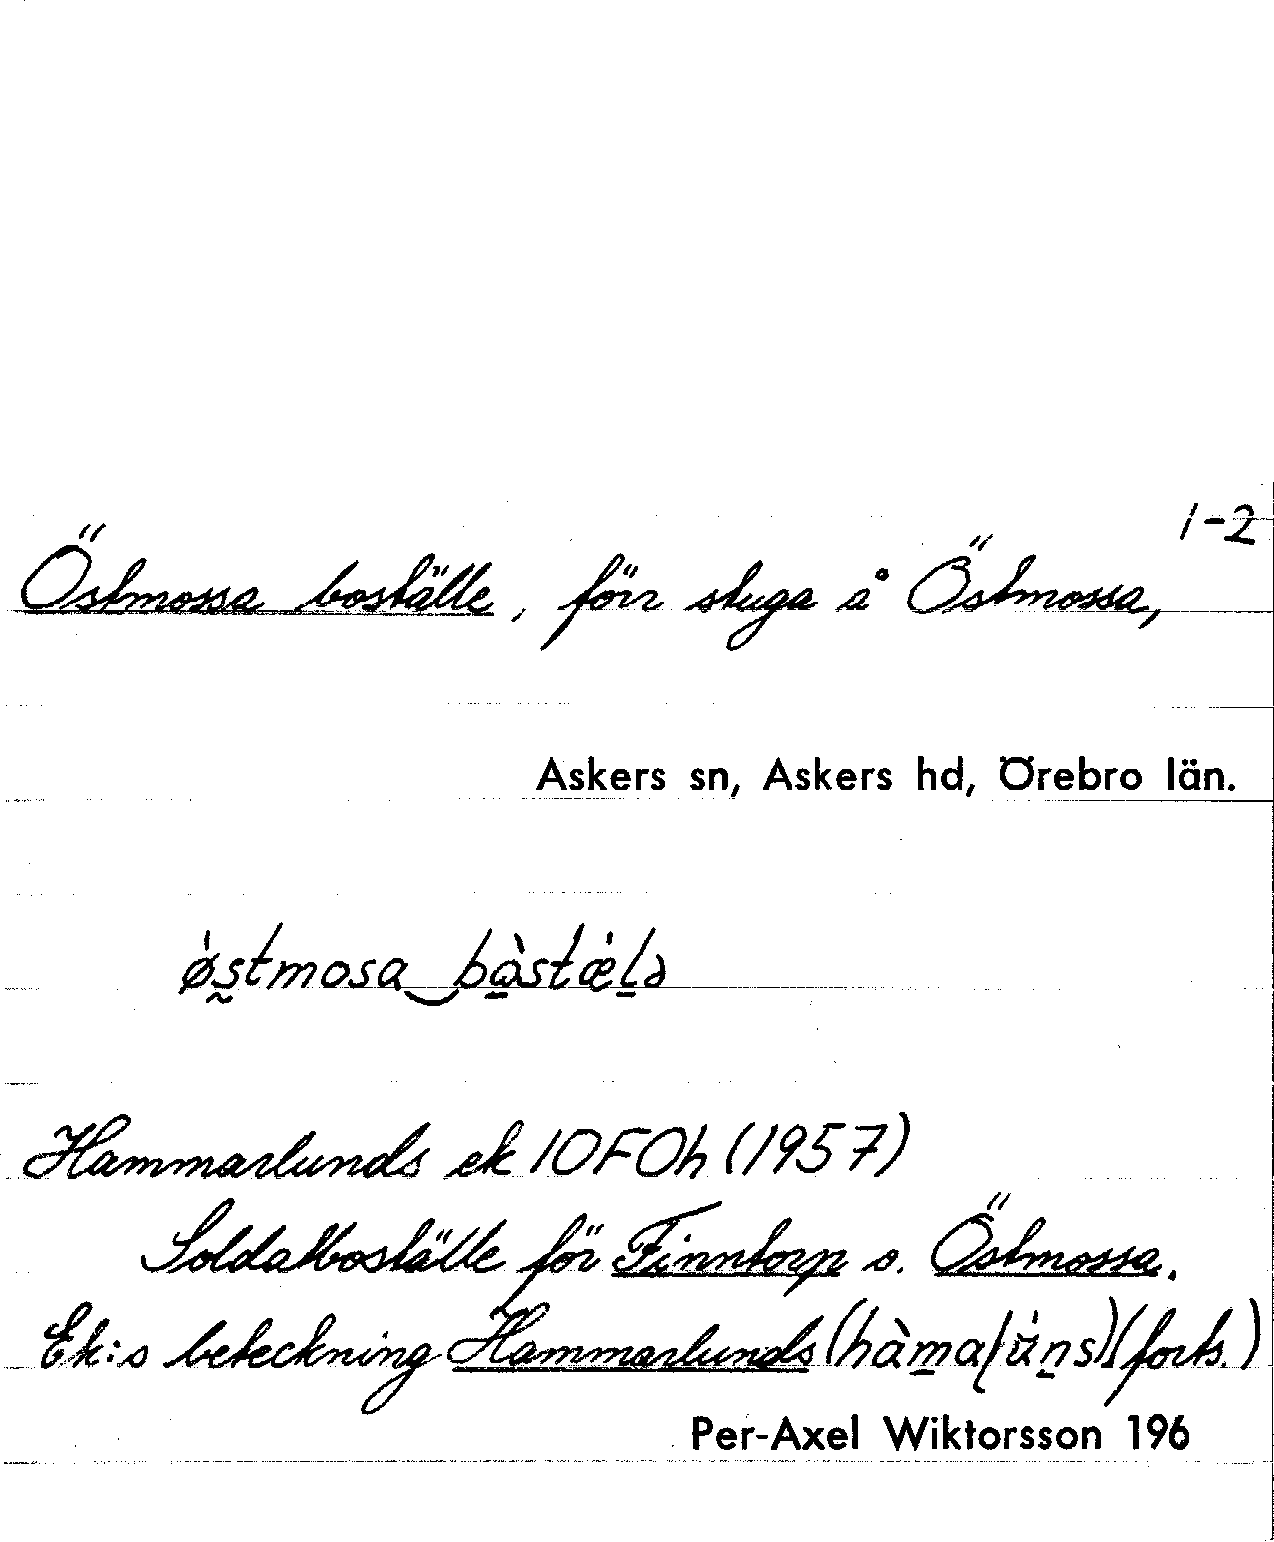 1-2
Östmossa boställe, förr stuga å Östmossa,
Askers sn, Askers hd, Örebro län.
ǿstmosa‿bòstǽlə
Hammarlunds ek 10F0h (1957)
Soldatboställe för Finntorp o. Östmossa.
Ek:s beteckning Hammarlunds (forts.)
Per-Axel Wiktorsson 196